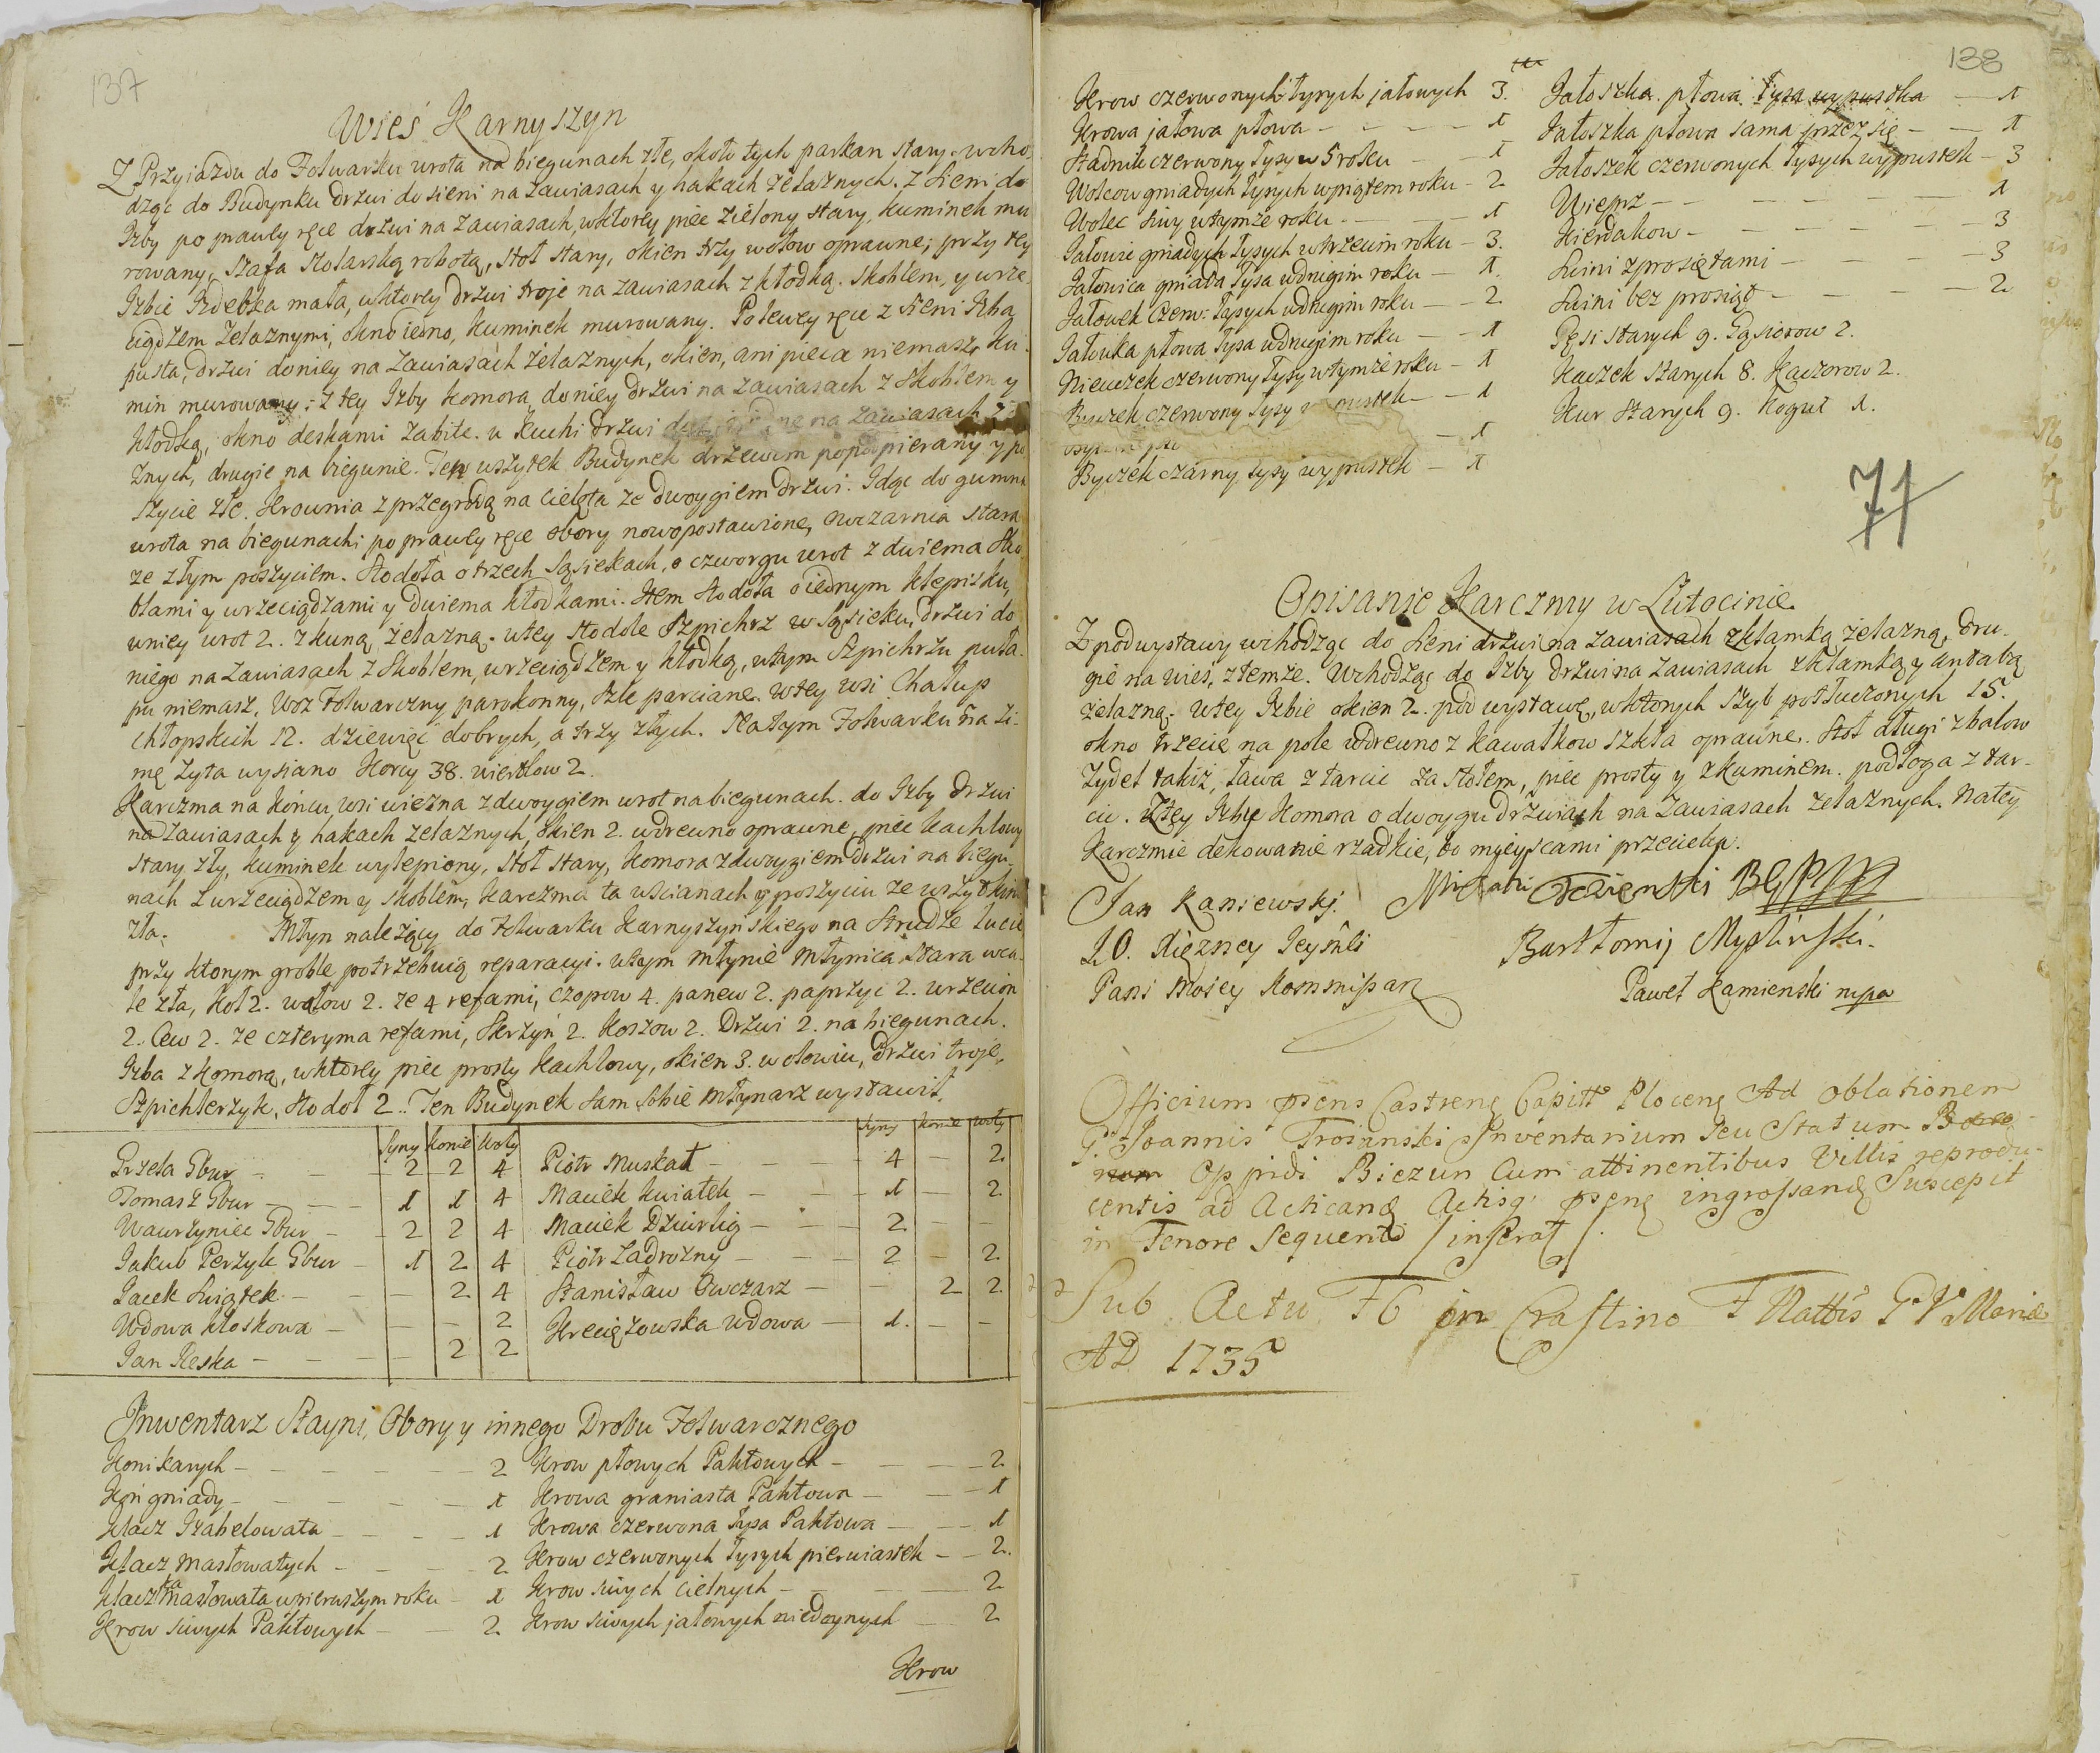 137
Wieś Karnyszyn
Z Przyiazdu do Folwarku wrota na biegunach złe, około tych parkan stary. wcho,
dząc do Budynku drzwi do sieni na zawiasach y hakach żelaznych. z Sieni do
Izby po prawey ręce drzwi na zawiasach, wktorey piec zielony stary, kuminek mu
rowany, szafa stolarską robotą, stoł stary, okien trzy wołow oprawne, przy tey
Izbie Izdebka mała, wktorey drzwi troje na zawiasach z kłodką. skoblem, y wrze,
ciądzem żelaznymi, okno iedno, kuminek murowany. Po lewey ręce z sieni Izba
pusta, drzwi do niey na zawiasach żelaznych, okien, ani pieca niemasz, ku,
min murowany; z tey Izby komora do niey drzwi na zawiasach z skoblem y
kłodką, okno deskami zabite. w Kuchi drzwi na zawiasach
znych, drugie na biegunie. Ten wszytek Budynek drzewem popodpierany y po
szycie złe. Krownia z przegrodą na cielęta ze dwoygiem drzwi. Idąc do gumna
wrota na biegunach; po prawey ręce obory nowopostawione, owczarnia stara
ze złym poszyciem. Stodoła o trzech sąsiekach, o czworgu wrot z dwiema sko
blami y wrzeciądzami y dwiema kłodkami. Item stodoła o iednym klepisku,
wniey wrot 2. z kuną żelazną. wtey stodole Szpichrz w sąsieku, drzwi do
niego na zawiasach z skoblem, wrzeciądzem y kłodką, wtym Szpichrzu puła,
pu niemasz. Woz Folwarczny parokonny, szle parciane. Wtey wsi Chałup
chłopskich 12. dziewięć dobrych, a trzy złych. Na tym Folwarku na zi,
mę żyta wysiano Korcy 38. wiertlow 2.
Karczma na końcu wsi wiezna z dwoygiem wrot na biegunach. do Izby drzwi
na zawiasach y hakach żelaznych, okien 2. wdrewno oprawne, piec kachlowy
stary zły, kuminek wylepiony, stoł stary, komora z dwoygiem drzwi na biegu,
nach z wrzeciądzem y skoblem, karczma ta wścianach y poszyciu ze wszytkim
zła. Młyn należący do Folwarku Karnyszyńskiego na Strudze
przy ktorym groble potrzebuią reparacyi. wtym młynie młynica stara wca,
le zła, koł 2. wałow 2. ze 4 refami, czopow 4. panew 2. paprzyc 2. wrzecion
2. Cew 2. ze czteryma refami, skrzyń 2. koszow 2. Drzwi 2. na biegunach.
Izba z komorą, wktorey piec prosty kachlowy, okien 3. wołowiu, drzwi troje,
Szpichlerzyk, stodoł 2. Ten Budynek sam sobie młynarz wystawił.
Syny konie woły Syny konie woły
Grzela Gbur - 2 2 4 Piotr Muskat - 4 - 2
Tomasz Gbur - 1 1 4 Maciek Kwiatek - 1 - 2
Wawrzyniec Gbur - 2 2 4 Maciek Dziurlig - 2 - -
Jakub Perzyk Gbur - 1 2 4 Piotr Zadrożny - 2 - 2
Jacek Swiątek - - 2 4 Stanisław Owczarz - - 2 2
Wdowa Kłoskowa - - - 2 Kreciszowska wdowa - 1. - -
Jan Reska - - 2 2
Inwentarz Stayni, Obory y innego Drobu Folwarcznego
Koni karych - 2 Krow płowych Pahtowych - 2
Koń gniady - 1 Krowa graniasta Pahtowa - 1
Klacz Izabelowata - 1 Krowa czerwona łysa Pahtowa - 1
Klacz masłowatych - 2 Krow czerwonych łysych pierwiastek - 2.
Klaczka masłowata wpierwszym roku - 1 Krow siwych cielnych - 2
Krow siwych Pahtowych - 2 Krow siwych jałowych niedoynych - 2
Krow
138
Krow czerwonych łysych jałowych 3. Jałoszka płowa łysa wypustka - 1
Krowa jałowa płowa - 1 Jałoszka płowa sama przez się - 1
Stadnik czerwony łysy w 5 roku - 1 Jałoszek czerwonych łysych wypustek - 3
Wolcow gniadych łysych wpiątem roku - 2 Wieprz - 1
Wolec siwy wtymże roku - 1 Kierdakow - 3
Jałowic gniadych łysych wtrzecim roku - 3. Swini z prosiętami - 3
Jałowica gniada łysa wdrugim roku - 1. Swini bez prosiąt - 2
Jałowek Czerw: łysych wdrugim roku - 2 Gęsi starych 9. Gąsiorow 2.
Jałowka płowa łysa wdrugim roku - 1 Kaczek starych 8. Kaczorow 2.
Nieuczek czerwony łysy wtymże roku - 1 Kur starych 9. Kogut 1.
Byczek czerwony łysy - 1
- 1
Byczek czarny łysy wypustek - 1
71
Opisanie Karczmy w Lutocinie
Z podwystawy wchodząc do Sieni drzwi na zawiasach z klamką żelazną, dru,
gie na wieś, z temże. Wchodząc do Izby drzwi na zawiasach z klamką y antabą
żelazną. wtey Izbie okien 2. pod wystawę, wktorych szyb potłuczonych 15.
okno trzecie na pole wdrewno z kawałkow szkła oprawne. stoł długi z balow
Zydel takiż, ława z tarcic za stołem, piec prosty y z kuminem. podłoga z tar,
cic. Ztey Izby Komora o dwoygu drzwiach na zawiasach żelaznych. Natey
Karczmie dekowanie rzadkie, bo mieyscami przecieka.
Jan Kaniewskj.
J.O. Xięzney Jeymci
Pani Moiey Kommissarz
Bartłomij Mysliński.
Paweł Kamienski mpa
Officium psens Castren Capitt Plocen Ad oblationem
G. Joannis Troianski Inventarium seu Statum
Oppidi Biezun Cum attinentibus Villis reprodu-
centis ad Acticand Actisq psen ingrossand Suscepit
in Tenore Sequenti / inserat /.
Sub Actu F6 in Crastino F Nattis G V Mariae
AD 1735